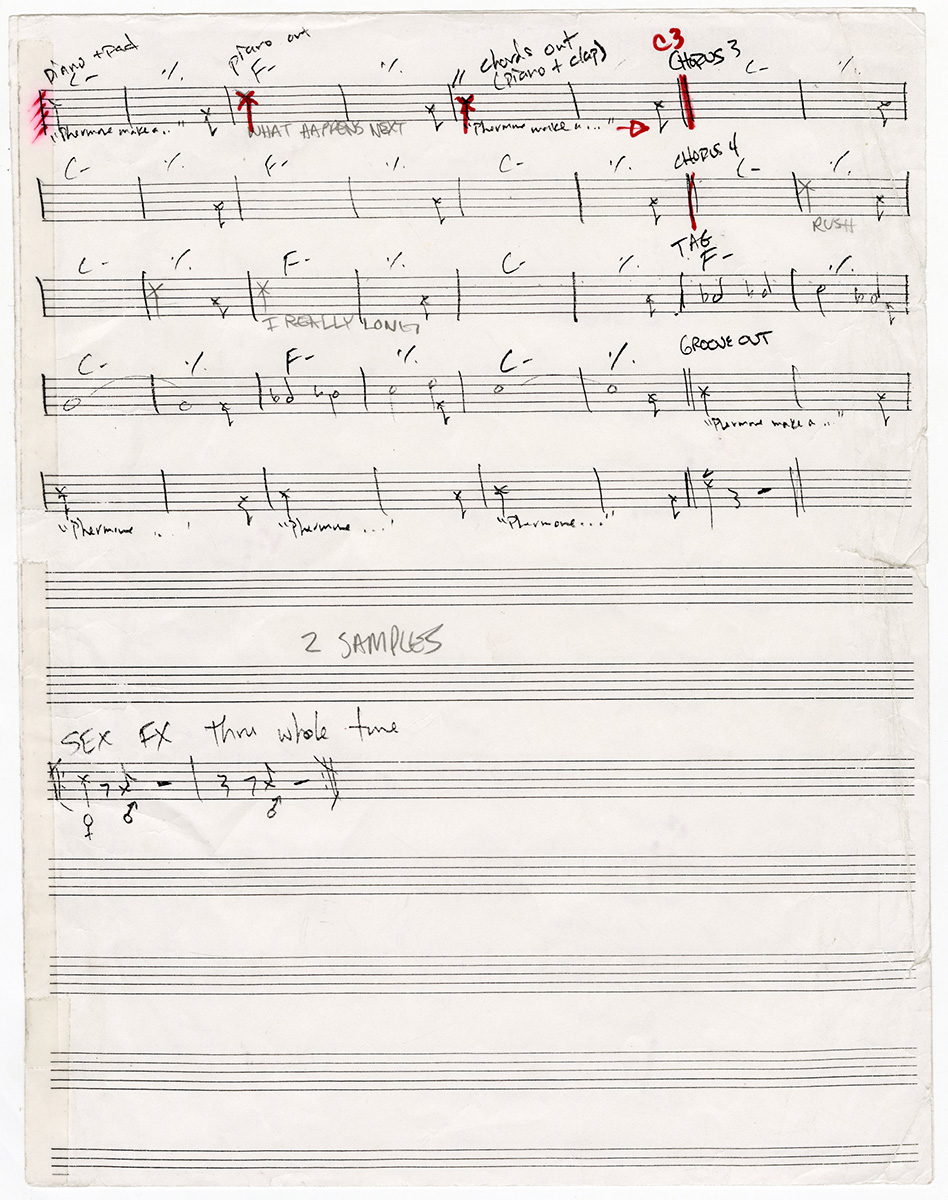 piano + pad piano out chords out C3
(piano + clap) CHORUS 3
C- ٪ F- ٪ // C- ٪
"Phermone make a..." WHAT HAPPENS NEXT "Phermone make a..."
CHORUS 4
C- ٪ F- ٪ C- ٪ C- ٪
RUSH
TAG
C- ٪ F- ٪ C- ٪ F- ٪
I REALLY LONG
GROOVE OUT
C- ٪ F- ٪ C- ٪
"Phermone make a..."
"Phermone ...' "Phermone ...' "Phermone..."
2 SAMPLES
SEX FX thru whole tune
♀ ♂ ♂